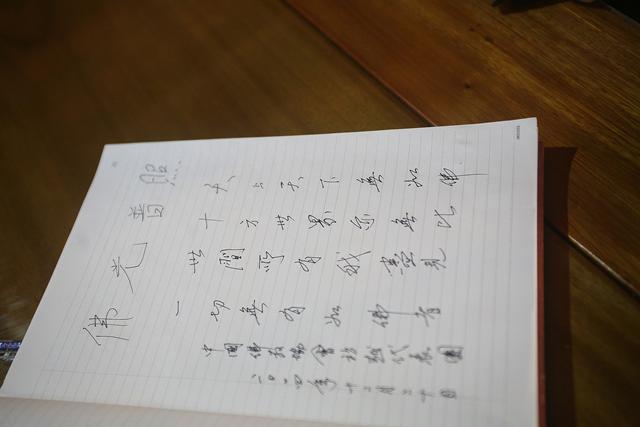 佛光普照
天上天下無如佛
十方世界亦無比
世間所有我盡見
一切無有如佛者
中國佛教協會代表團
二〇一四年月十日